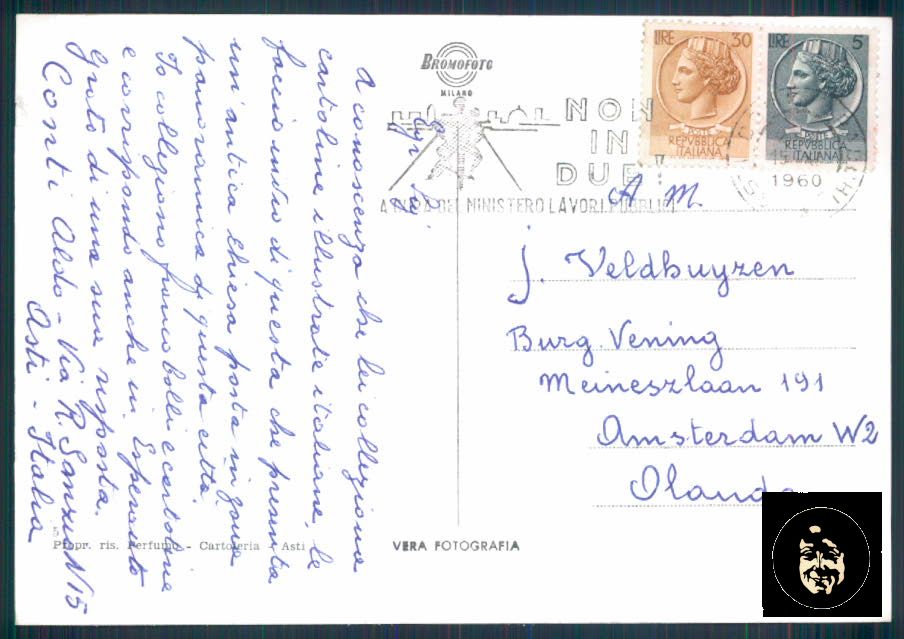 BROMOFOTO
MILANO
LIRE 30
POSTE
REPVBBLICA
ITALIANA
LIRE 5
REPVBBLICA
ITALIANA
NON
IN
DUE!
MINISTERO LAVORI PUBBLICI
1960
A M.
J. Veldhuyzen
Burg. Vening
Meineszlaan 191
Amsterdam W2
Olanda
A conoscenza che lei colleziona
cartoline illustrate italiane, le
faccio invio di questa che presenta
un'antica chiesa posta in zona
panoramica di questa città.
Io colleziono francobolli e cartoline
e corrispondo anche in Esperanto
Grato di una sua risposta.
Conti Aldo - Via R. Sanzio N 15
Asti - Italia
5
Propr. ris. Perfumo - Cartoleria - Asti
VERA FOTOGRAFIA